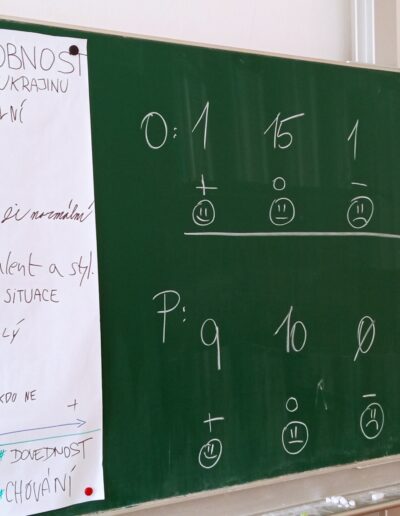 OBNOST
UKRAJINU
LNÍ
je normální
alent a styl.
SITUACE
LÝ
KDO NE
+
DOVEDNOST
CHOVÁNÍ
O: 1 15 1
+ o −
P: 9 10 0
+ o −